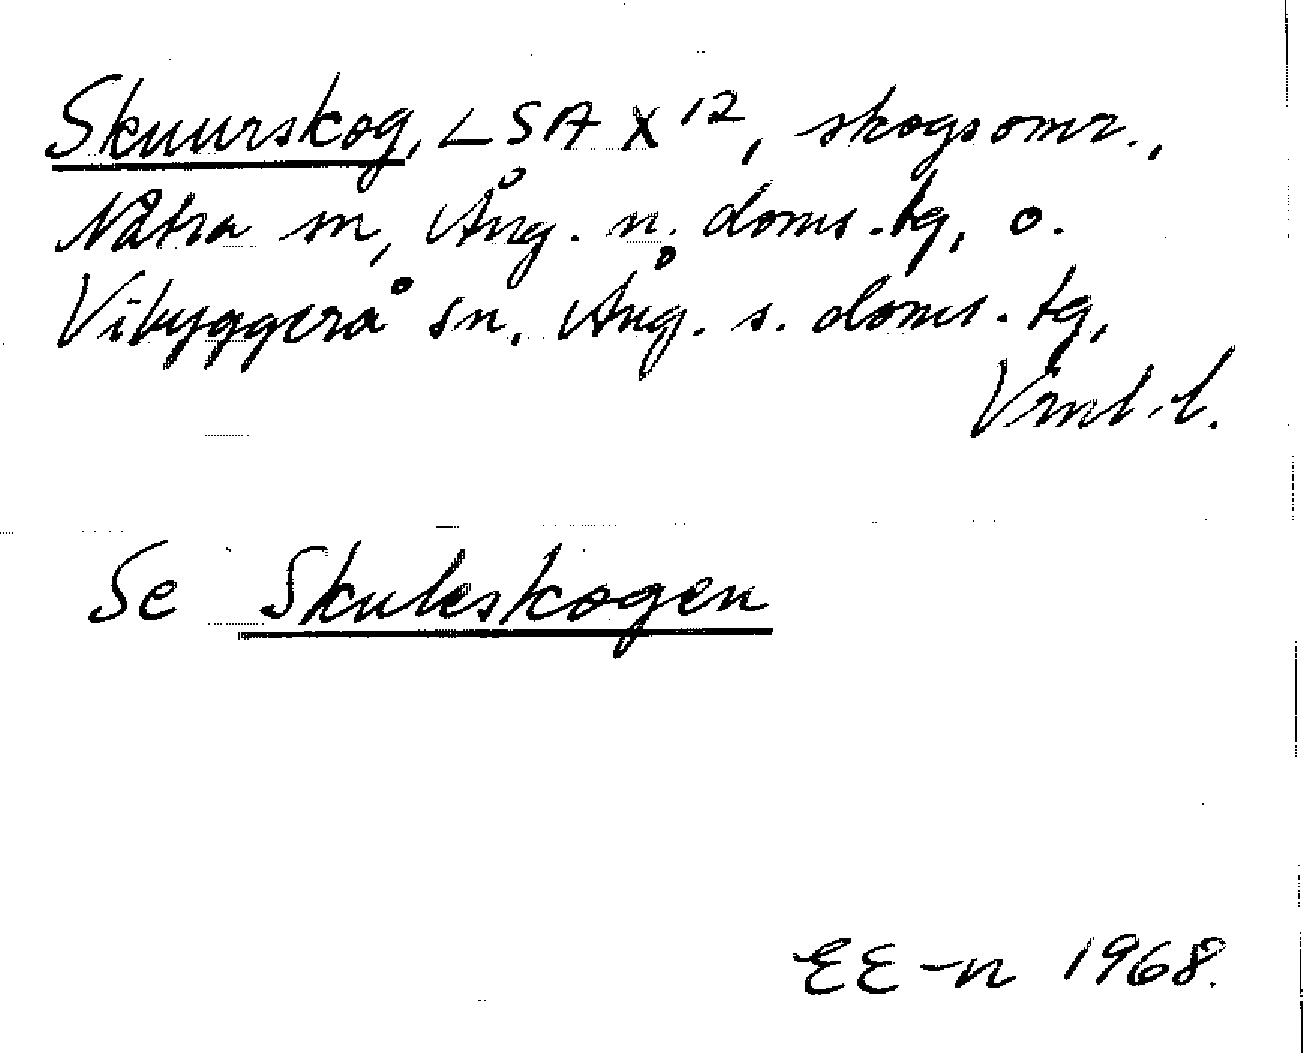 Skuurskog, LSA X 12, skogsomr.,
Nätra sn, Ång. n. doms.tg, o.
Vibyggerå sn, Ång. s. doms.tg,
Vrnl.l.
Se Skuleskogen
EE-n 1968.